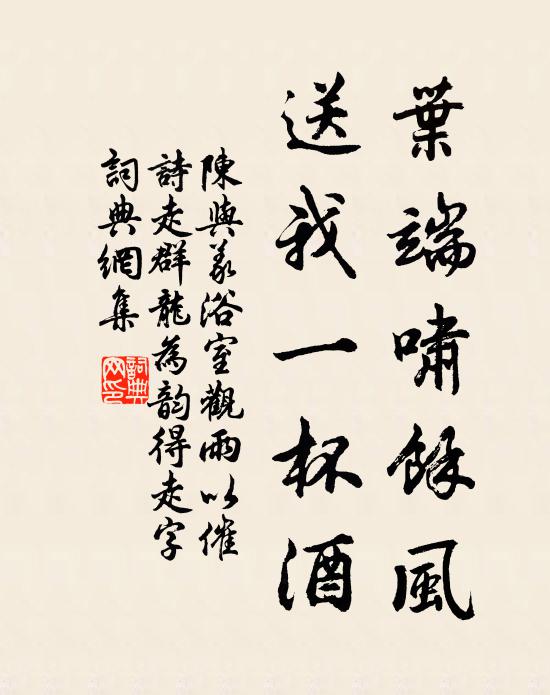 葉端嘯餘風
送我一杯酒
陳與義浴室觀雨以催
詩走群龍為韵得走字
詞典網集
詞典网印